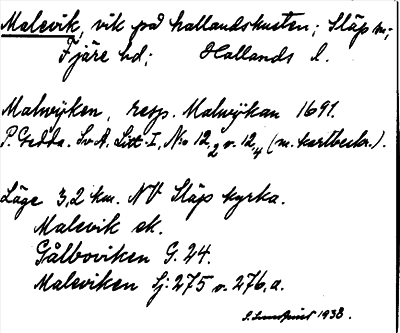 Malevik, vik på hallandskusten; Släp sn;
Fjäre hd; Hallands l.
Malwijken, resp. Malwijkan 1691.
P. Gedda. Sv A. Litt. I, No 12,2 o. 12,4 (m. kartbeskr.).
Läge 3,2 km. NV Släp kyrka.
Malevik ek.
Gålboviken G. 24.
Maleviken Sj. 275 o. 276,a.
1938.